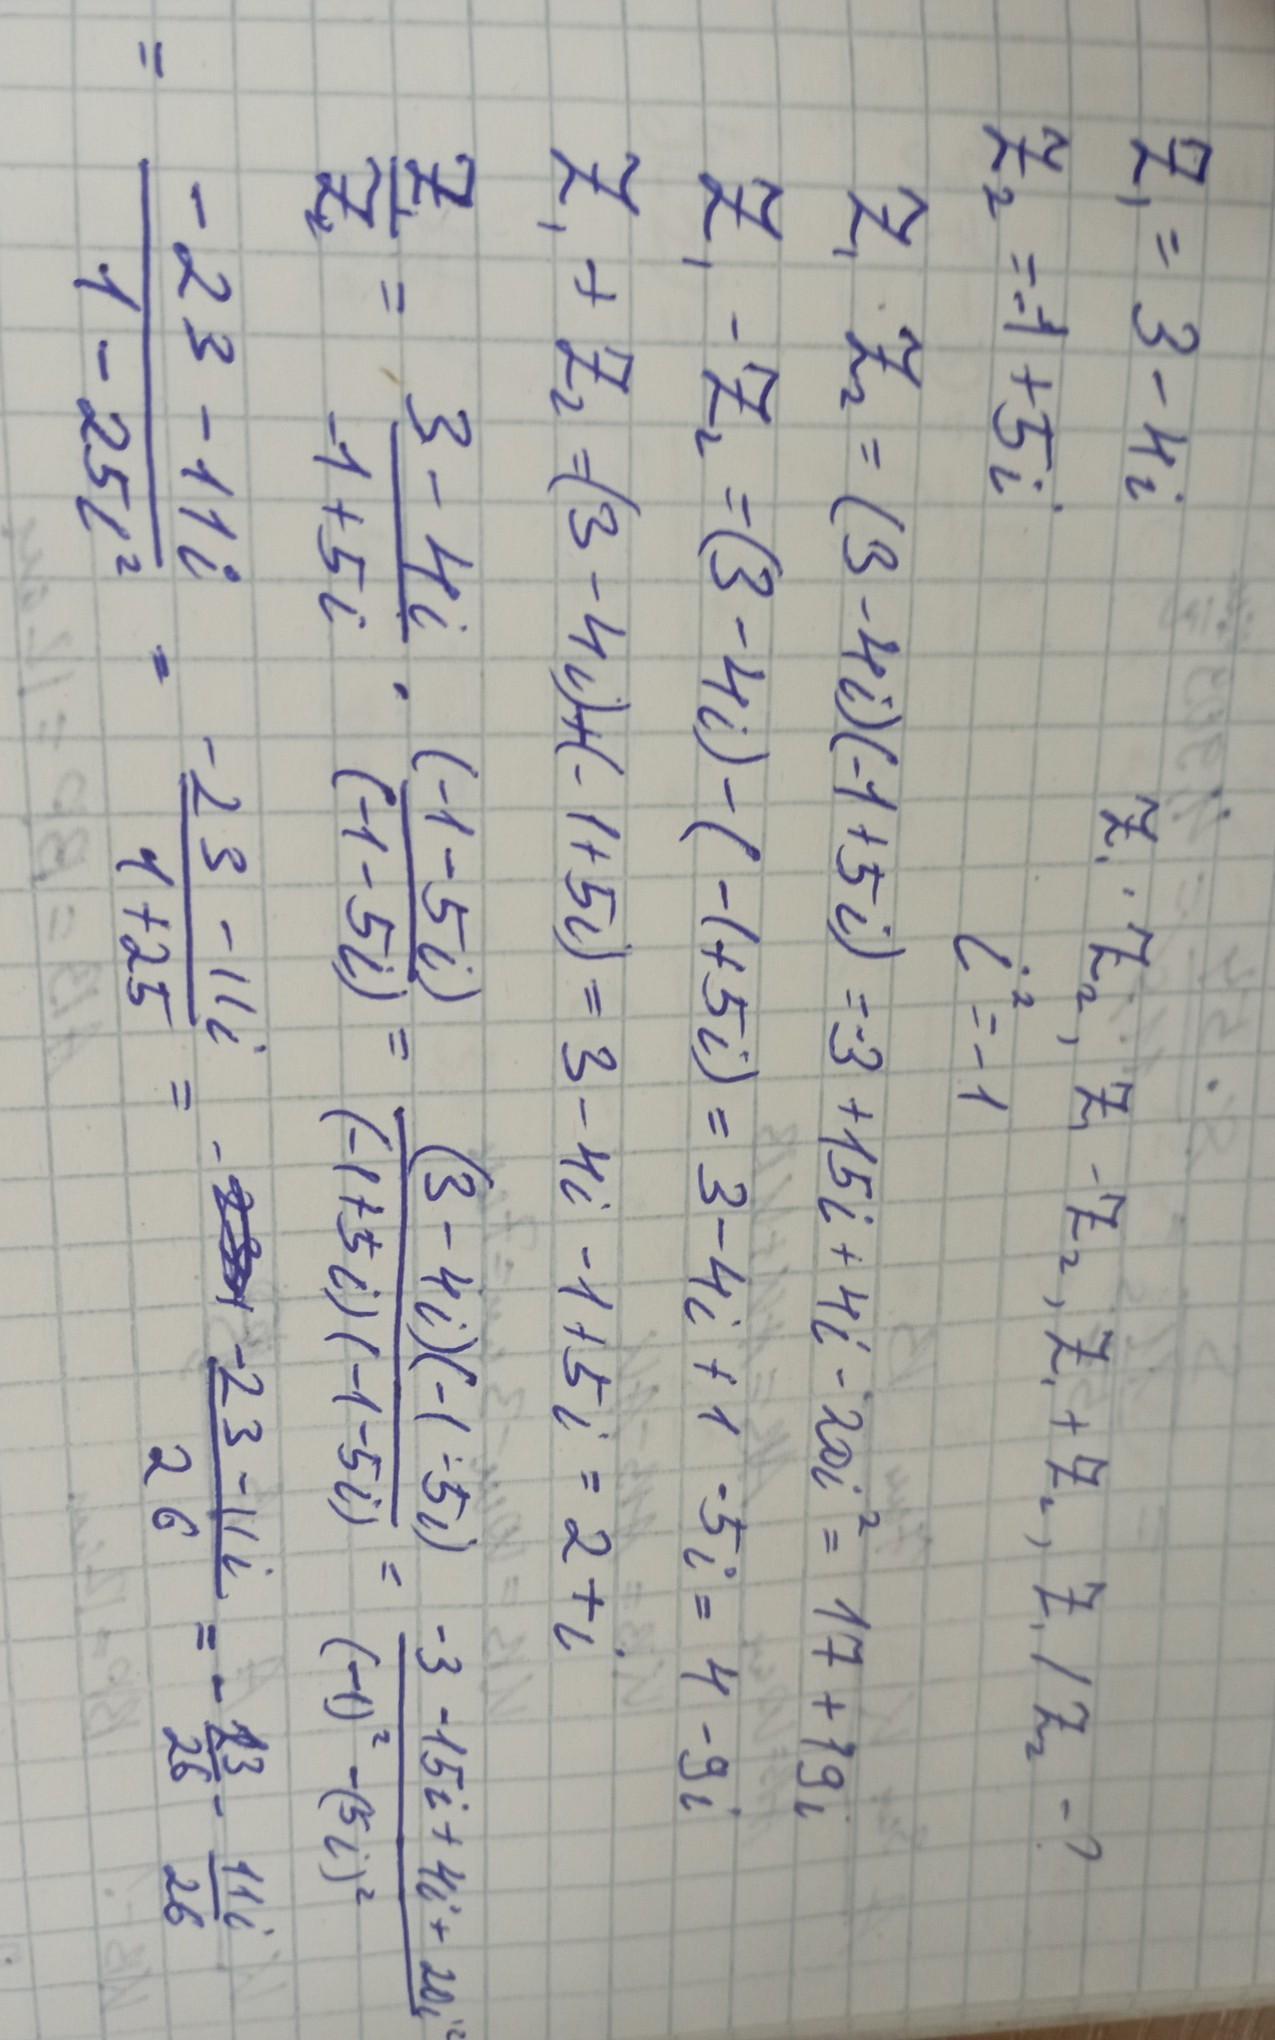 Z₁ = 3 - 4i
Z₁ · Z₂, Z₁ - Z₂, Z₁ + Z₂, Z₁ / Z₂ - ?
Z₂ = -1 + 5i
i² = -1
Z₁ · Z₂ = (3 - 4i)(-1 + 5i) = -3 + 15i + 4i - 20i² = 17 + 19i
Z₁ - Z₂ = (3 - 4i) - (-1 + 5i) = 3 - 4i + 1 - 5i = 4 - 9i
Z₁ + Z₂ = (3 - 4i) + (-1 + 5i) = 3 - 4i - 1 + 5i = 2 + i
Z₁/Z₂ = (3 - 4i)/(-1 + 5i) · (-1 - 5i)/(-1 - 5i) = (3 - 4i)(-1 - 5i)/(-1 + 5i)(-1 - 5i) = (-3 - 15i + 4i + 20i²)/((-1)² - (5i)²)
= (-23 - 11i)/(1 - 25i²) = (-23 - 11i)/(1 + 25) = (-23 - 11i)/26 = -23/26 - 11i/26